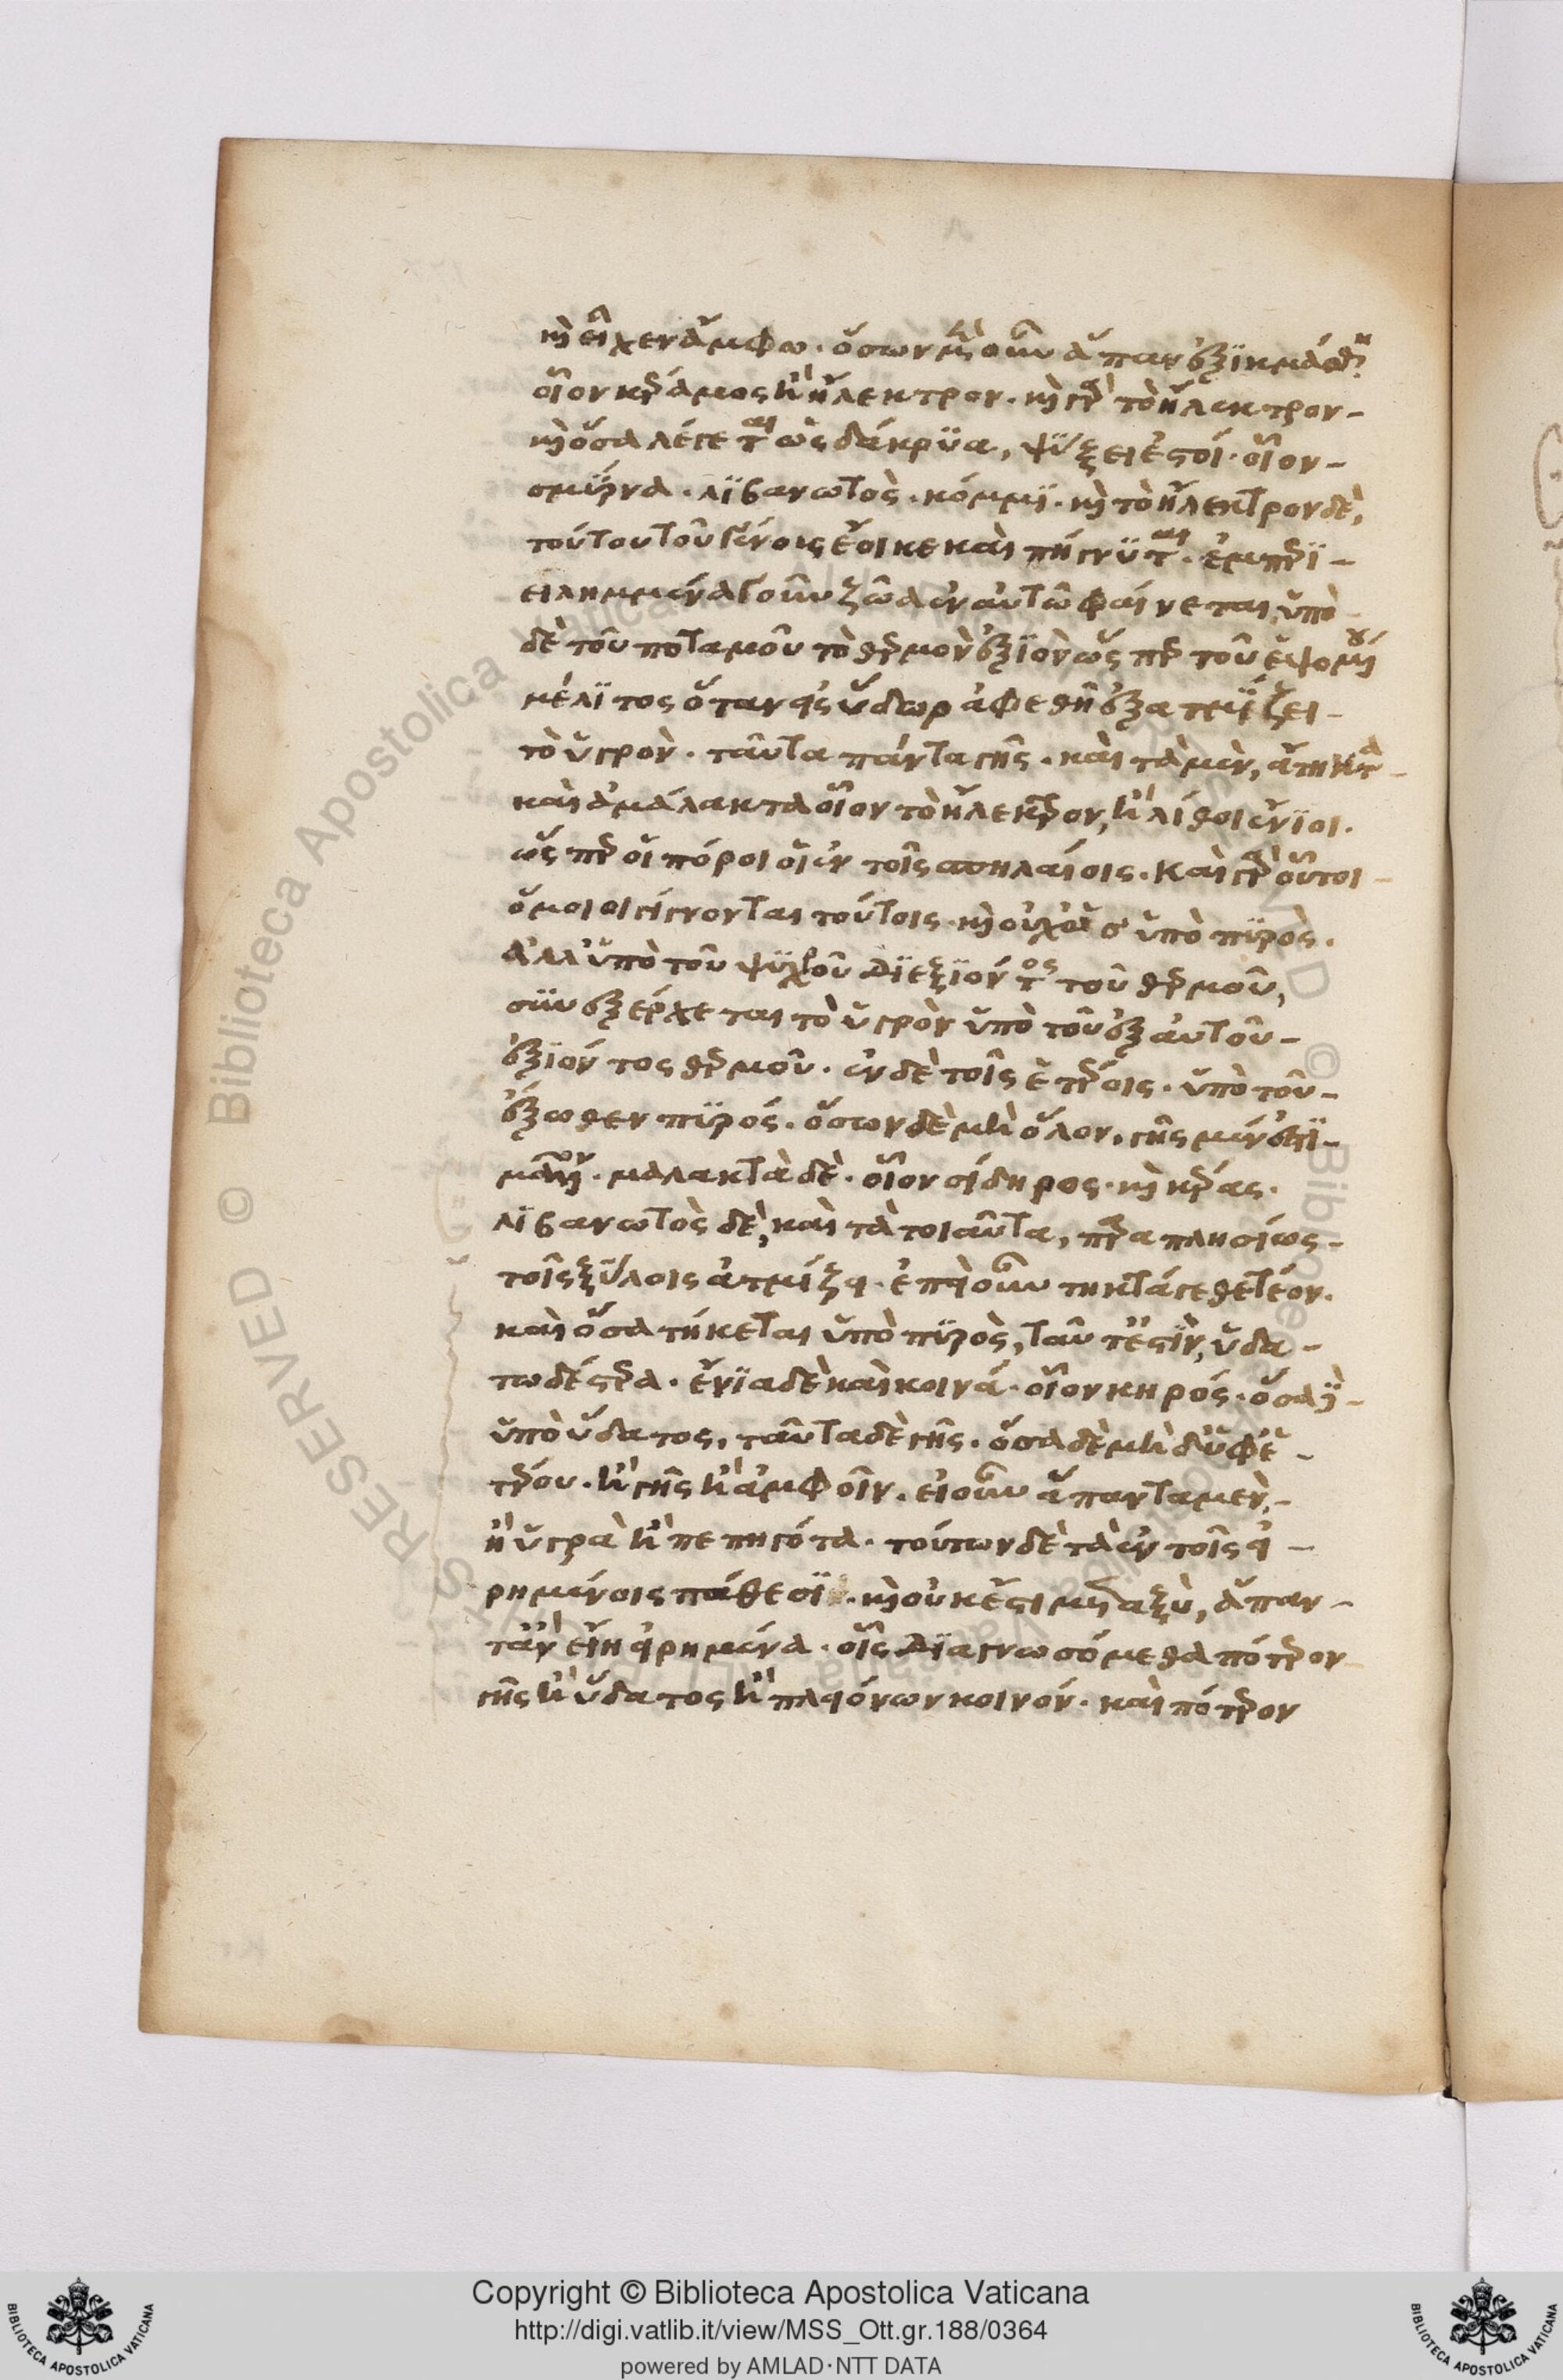 καὶ εἶχεν ἄμφω. ὅσων μὲν οὖν ἅπαν ἐξϊκμάσθη
οἷον κέραμος ἢ ἤλεκτρον. καὶ γὰρ τὸ ἤλεκτρον-
καὶ ὅσα λέγεται ὡς δάκρϋα, ψύξει ἐστί. οἷον-
σμύρνα. λϊβανωτὸς. κόμμϊ. καὶ τὸ ἤλεκτρον δὲ,
τούτου τοῦ γένοις ἔοικε καὶ πήγνϋται. ἐμπερϊ-
ειλημμένα γοῦν ζῶα ἐν αὐτῶ φαίνεται, ὑπὸ
δὲ τοῦ ποταμοῦ τὸ θερμὸν ἐξϊὸν ὥσπερ τοῦ ἑψομένου
μέλϊτος ὅταν εἰς ὕδωρ ἀφεθῆ ἐξατμΐζει-
τὸ ὑγρὸν. ταῦτα πάντα γῆς. καὶ τὰ μὲν, ἄτηκτα-
καὶ ἀμάλακτα οἷον τὸ ἤλεκτρον, ἢ λίθοι ἔνϊοι.
ὥσπερ οἱ πόροι οἱ ἐν τοῖς σπηλαίοις. Καὶ γὰρ οὗτοι-
ὅμοιοι γίγνονται τούτοις. καὶ οὐχ ὡς ὑπὸ πϋρὸς.
ἀλλ' ὑπὸ τοῦ ψϋχροῦ δϊεξϊόντος τοῦ θερμοῦ,
σϋνεξέρχεται τὸ ὑγρὸν ὑπὸ τοῦ ἐξ αὐτοῦ-
ἐξϊόντος θερμοῦ. ἐν δὲ τοῖς ἑτέροις. ὑπὸ τοῦ-
ἔξωθεν πϋρός. ὅσων δὲ μὴ ὅλον, γῆς μέν ἐστϊ-
μᾶλλον. μαλακτὰ δὲ. οἷον σίδηρος. καὶ κέρας.
λϊβανωτὸς δὲ, καὶ τὰ τοιαῦτα, παραπλησίως-
τοῖς ξύλοις ἀτμίζει. ἐπεὶ οὖν τηκτά γε θετέον.
καὶ ὅσα τήκεται ὑπὸ πϋρὸς, ταῦτ' ἔστϊν, ὑδα-
τωδέστερα. ἔνϊα δὲ καὶ κοινά. οἷον κηρός. ὅσα δὲ-
ὑπὸ ὕδατος, ταῦτα δὲ γῆς. ὅσα δὲ μὴ δ' ὑφ' ἑ-
τέρου. ἢ γῆς ἢ ἀμφοῖν. εἰ οὖν ἅπαντα μὲν,-
ἢ ὑγρὰ ἢ πεπηγότα. τούτων δὲ τὰ ἐν τοῖς εἰ-
ρημένοις πάθεσϊ. καὶ οὐκ ἔστι μεταξὺ, ἅπαν-
τ' ἂν εἴη εἰρημένα. οἷς δϊαγνωσόμεθα πότερον
γῆς ἢ ὕδατος ἢ πλειόνων κοινόν. καὶ πότερον
Copyright © Biblioteca Apostolica Vaticana
http://digi.vatlib.it/view/MSS_Ott.gr.188/0364
powered by AMLAD·NTT DATA
BIBLIOTECA APOSTOLICA VATICANA
BIBLIOTECA APOSTOLICA VATICANA